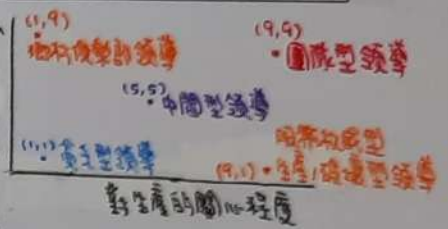 (1,9)
鄉村俱樂部領導
(9,9)
團隊型領導
(5,5)
中間型領導
(1,1) 領導
服從權威型
(9,1) 生產/ 型領導
對生產的關心程度